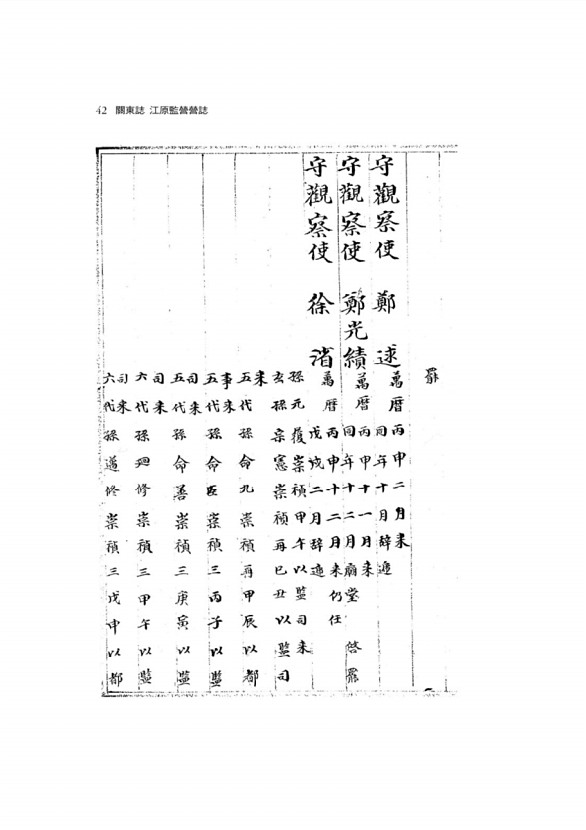 42 關東誌 江原監營營誌
罷
守觀察使 鄭逑
萬曆丙申二月來
同年十月辞逓
守觀察使 鄭光績
萬曆丙申十一月來
同年十二月廟堂 啓罷
守觀察使 徐渻
萬曆丙申十二月來仍任
戊戌二月辞逓
孫元履崇禎甲午以監司來
玄孫宗憲崇禎再己丑以監司
來
五代孫命九崇禎再甲辰以都
事來
五代孫命臣崇禎三丙子以監
司來
五代孫命善崇禎三庚寅以監
司來
六代孫廻修崇禎三甲午以監
司來
六代孫邁修崇禎三戊申以都